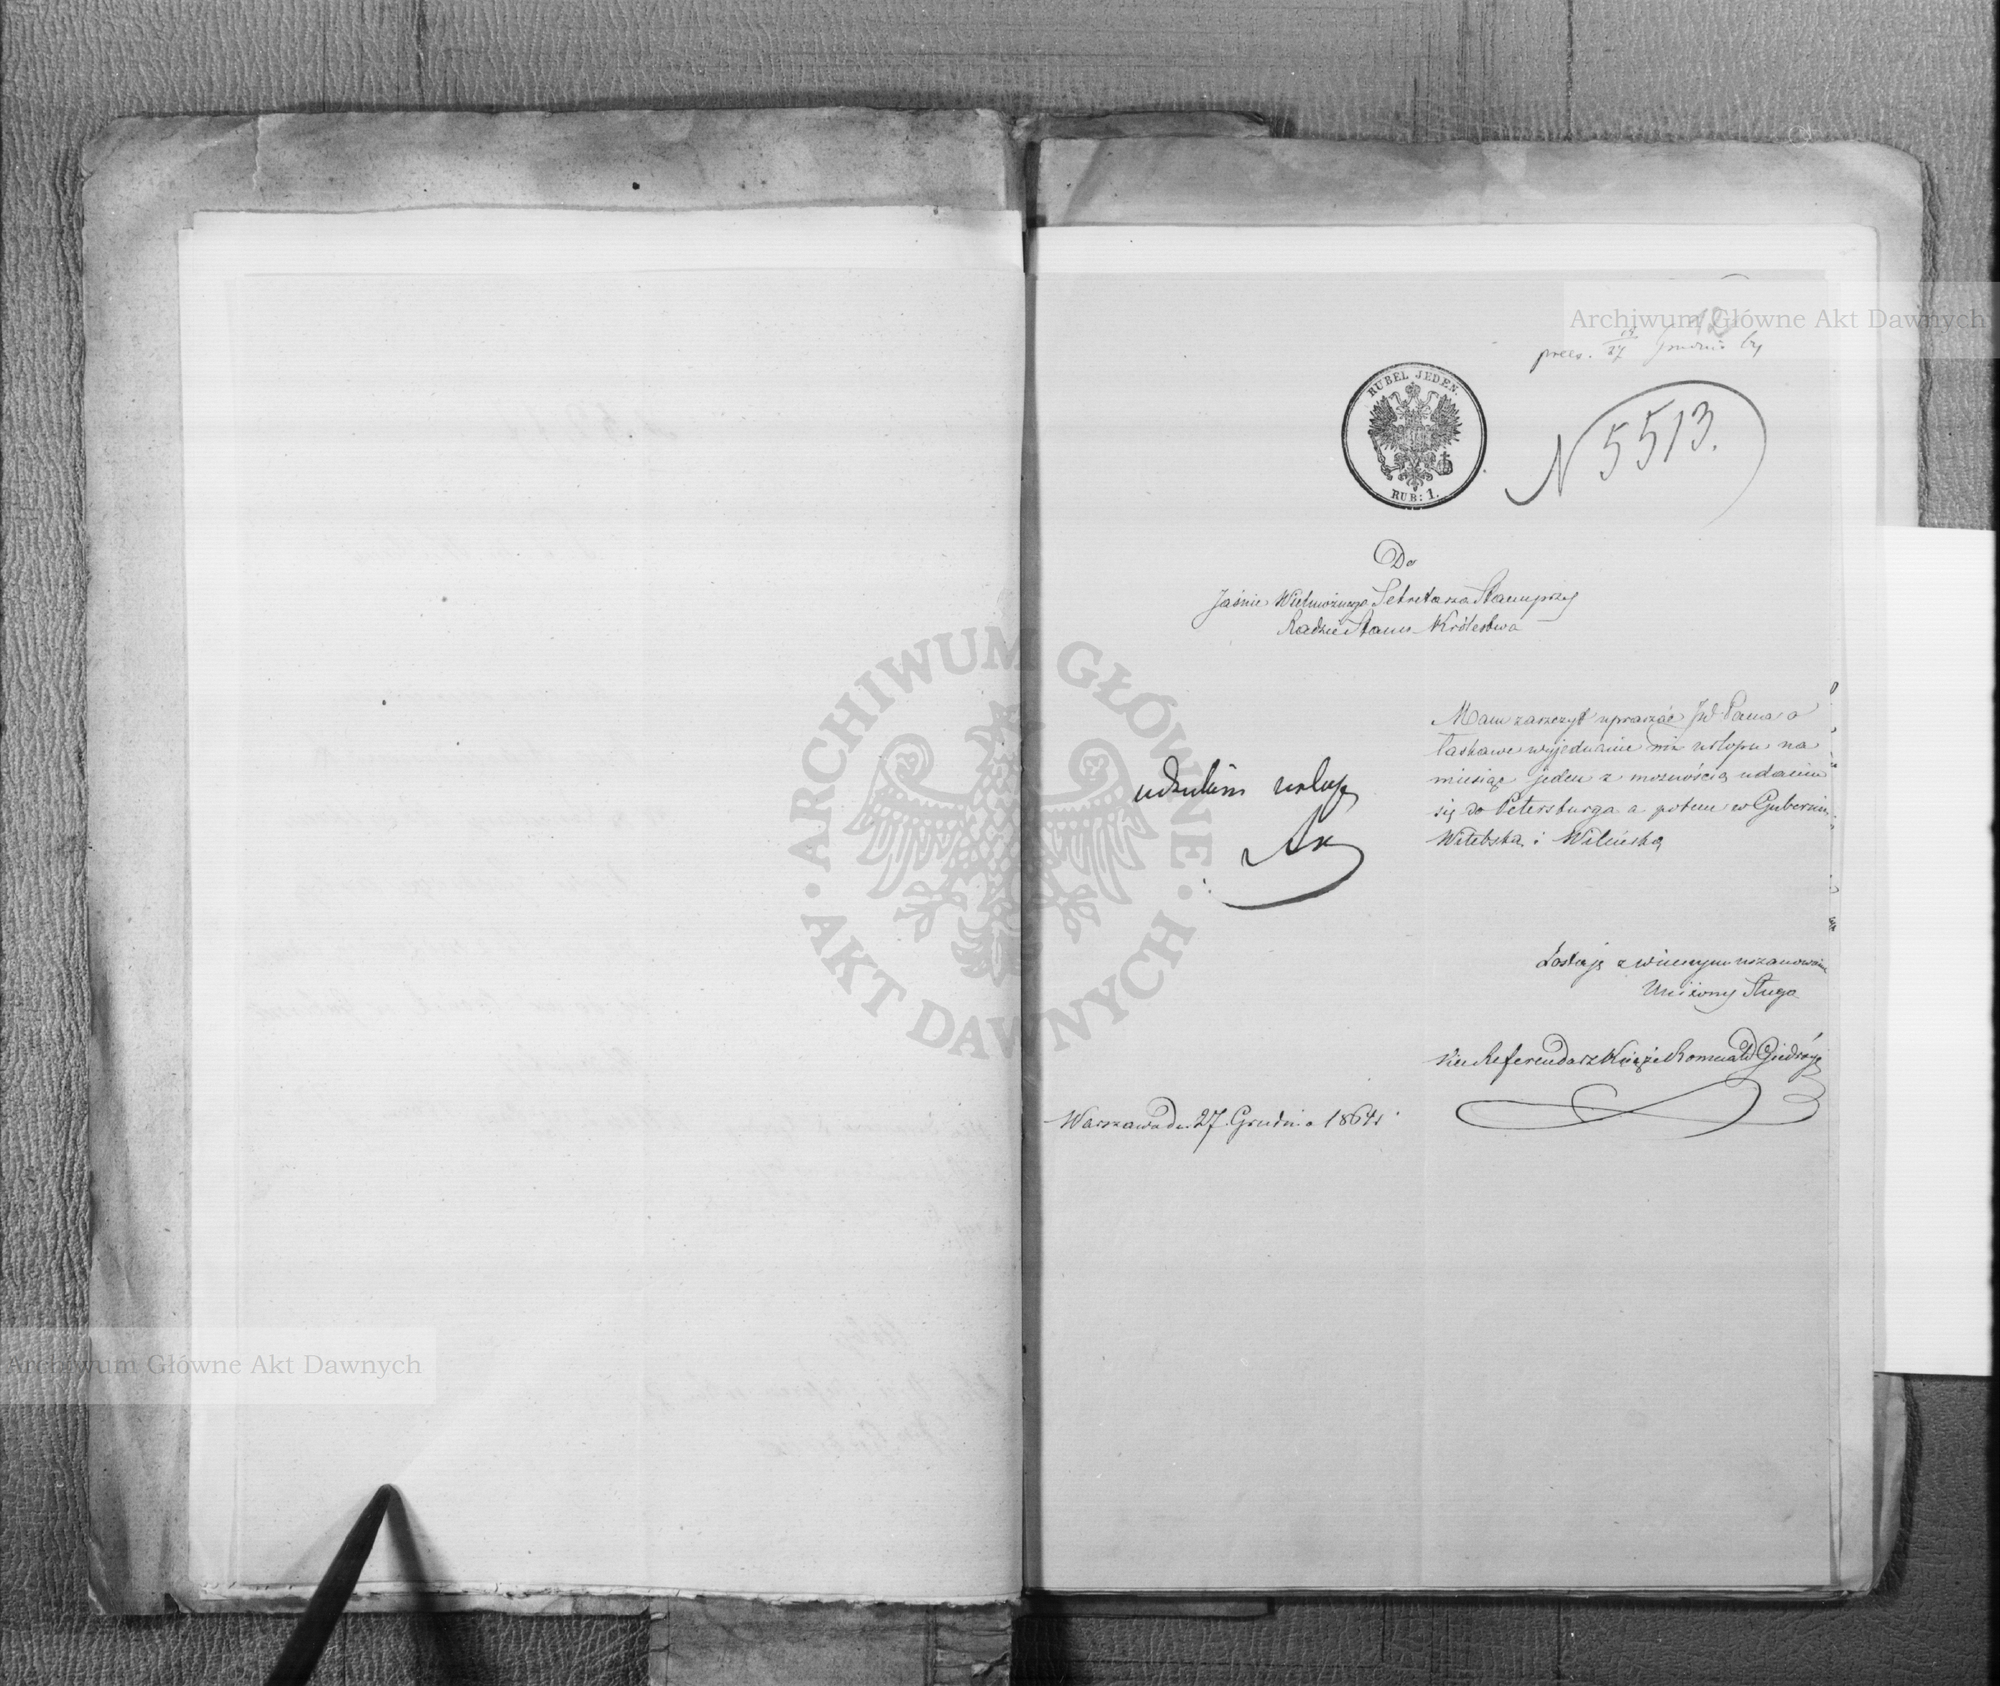 Archiwum Główne Akt Dawnych
12
praes. 15/27 Grudnia 64
RUBEL JEDEN.
RUB: 1.
N 5513.
Do
Jaśnie Wielmożnego Sekretarza Stanu przy
Radzie Stanu Królestwa
Mam zaszczyt upraszać JW Pana o
łaskawe wyjednanie mi urlopu na
miesiąc jeden z możnością udania
się do Petersburga a potem w Gubernię
Witebską i Wileńską
udzielam urlop
Zostaję z winnym uszanowaniem
Uniżony Sługa
Referendarz Książe Romuald Giedroyć
Warszawa d. 27 Grudnia 1864 r
ARCHIWUM GŁÓWNE AKT DAWNYCH
Archiwum Główne Akt Dawnych